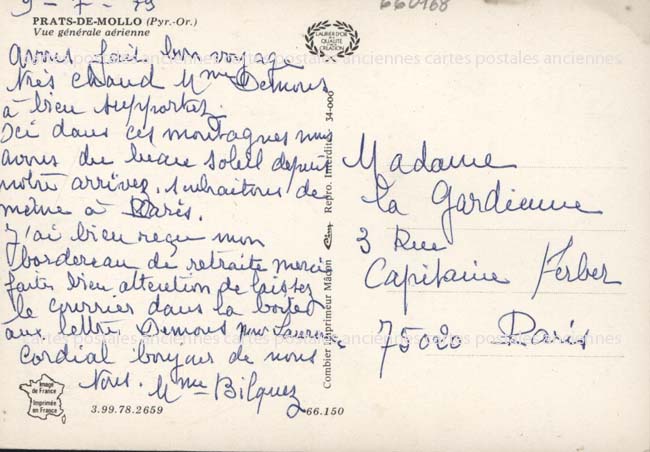 9-7-79
660168
PRATS-DE-MOLLO (Pyr.-Or.)
Vue générale aérienne
LAURIER D'OR
DE QUALITE
CREATION
avons fait bon voyage
très chaud Mme Demous
a bien supportez.
Ici dans ces montagnes nous
avons du beau soleil depuis
notre arrivez. souhaitons de
même à Paris.
J'ai bien reçu mon
bordereau de retraite merci
faites bien attention de laissez
le courrier dans la boites
aux lettre Demous
cordial bonjour de nous
Mme Bilquez
Madame
la Gardienne
3 Rue
Capitaine Ferber
75020 Paris
Combier Imprimeur Mâcon Cim Repro. Interdite 34-000
Image
de France
Imprimée
en France
3.99.78.2659
66.150
cartes postales anciennes cartes postales anciennes cartes postales anciennes